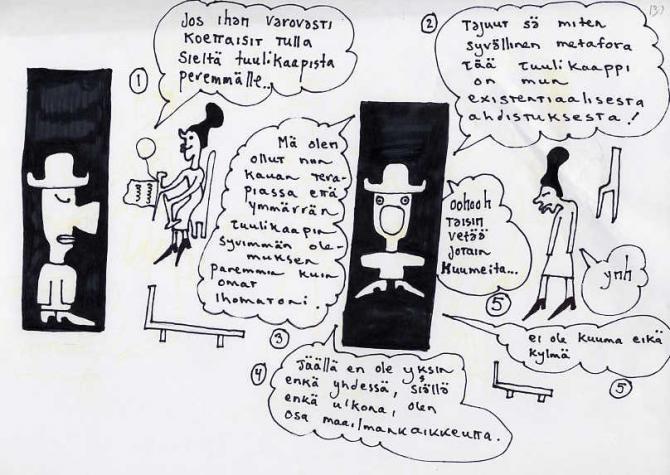 137
①
Jos ihan varovasti
koettaisit tulla
sieltä tuulikaapista
peremmälle..
②
Tajuut sä miten
syvällinen metafora
tää tuulikaappi
on mun
existentiaalisesta
ahdistuksesta!
Mä olen
ollut niin
kauan tera-
piassa että
ymmärrän
tuulikaapin
syvimmän ole-
muksen
paremmin kuin
omat
ihomatoni.
③
④
Täällä en ole yksin
enkä yhdessä, sisällä
enkä ulkona, olen
osa maailmankaikkeutta.
oohooh
taisin
vetää
jotain
kuumeita...
⑤
ynh
ei ole kuuma eikä
kylmä
⑤